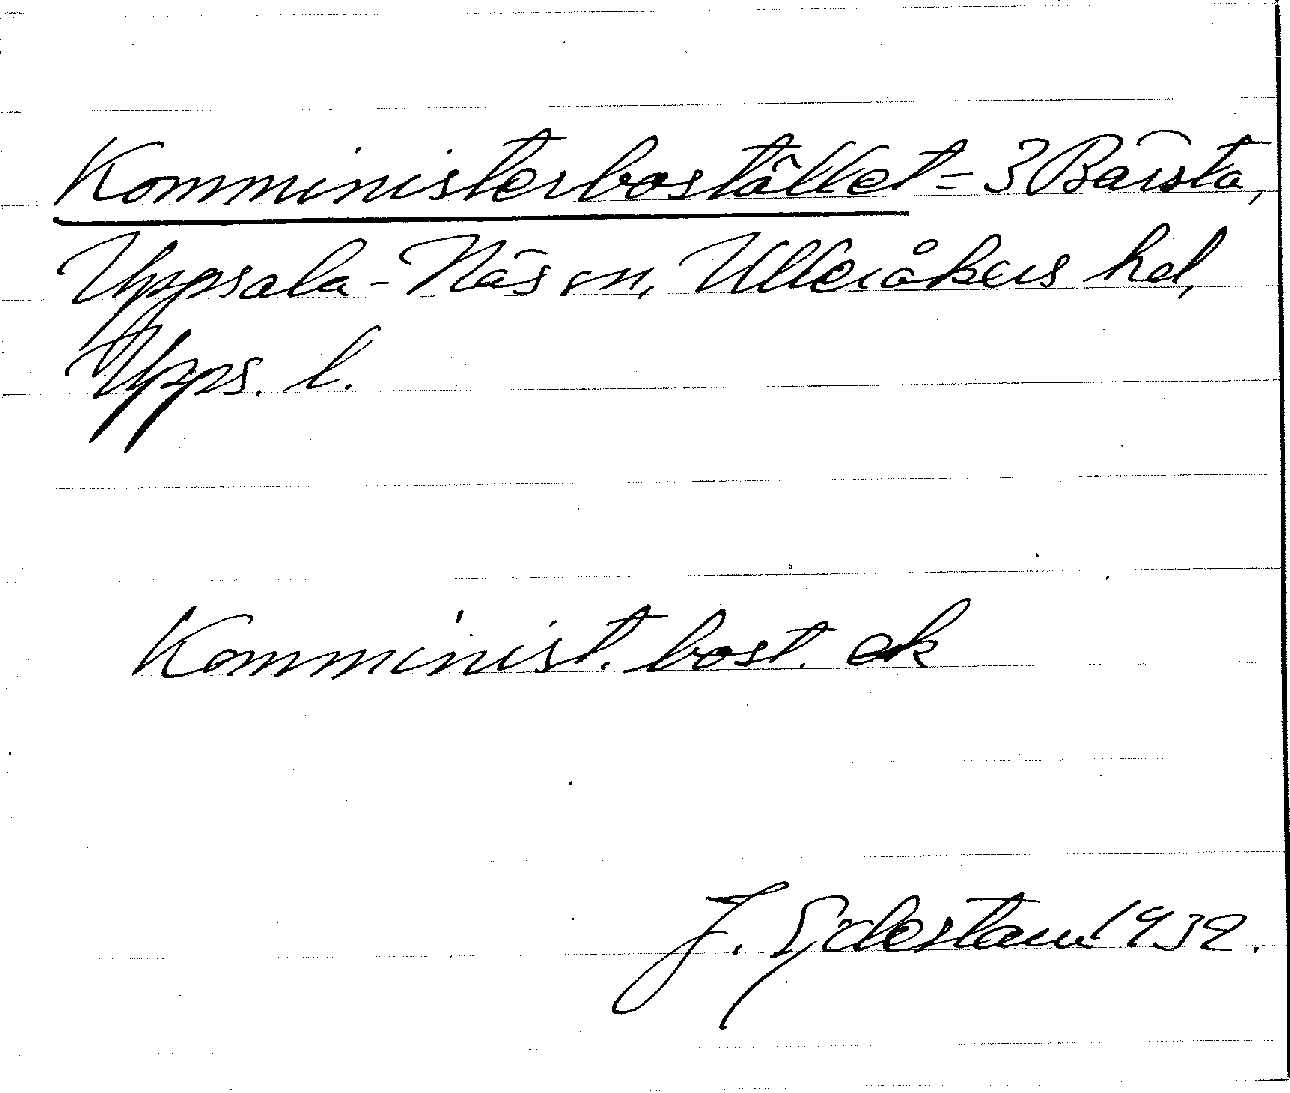 Komministerbostället = 3 Bärsta,
Uppsala-Näs sn, Ulleråkers hd,
Upps. l.
Komminist. bost. ek
F. Edestam 1932.